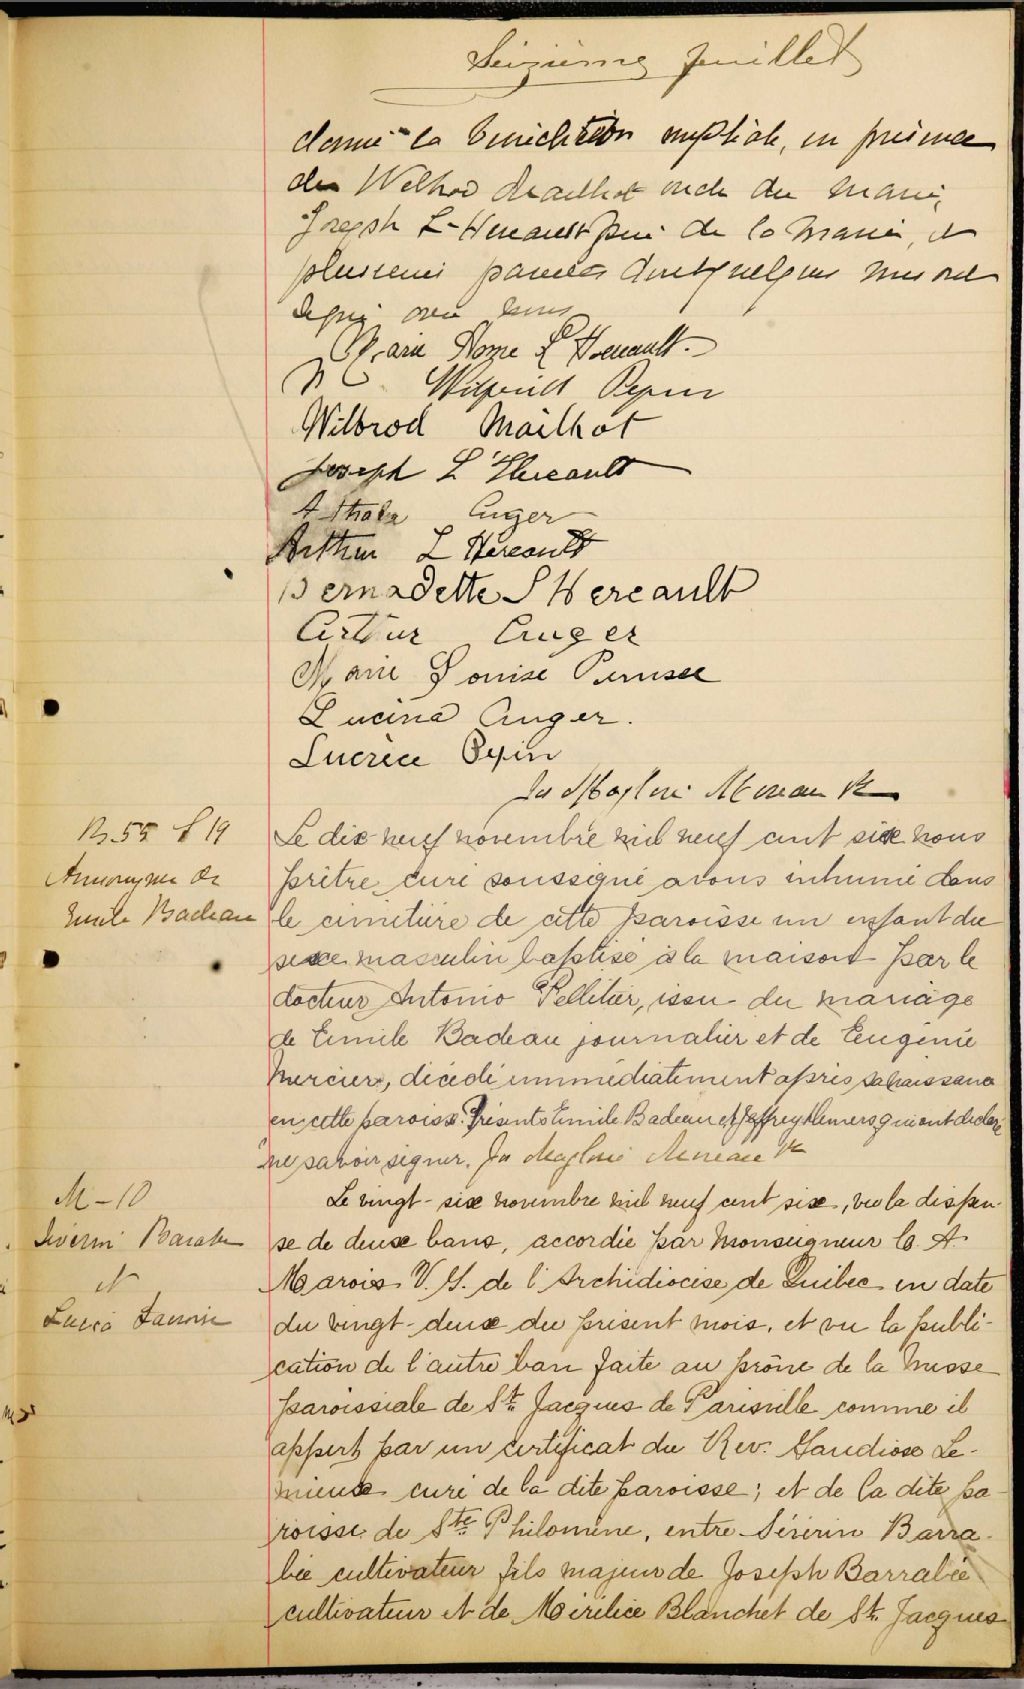 Seizième feuillet
donné la bénédiction nuptiale, en présence
de Wilbrod Mailhot oncle du marié,
Joseph L'Hereault père de la mariée, et
plusieurs parents dont quelques uns ont
signé avec nous
Marie Anne L'Hereault.
Wilfrid Pepin
Wilbrod Mailhot
Joseph L'Hereault
Athala Auger
Arthur L Hereault
Bernadette L Hereault
Arthur Auger
Marie Louise Perusse
Lucina Auger.
Lucrèce Pepin
Jos Magloire Moreau Ptre
B.55 S 19
Anonyme de
Emile Badeau
Le dix-neuf novembre mil neuf cent six nous
prêtre, curé soussigné avons inhumé dans
le cimetière de cette paroisse un enfant du
sexe masculin baptisé à la maison par le
docteur Antonio Pelletier, issu du mariage
de Emile Badeau journalier et de Eugénie
Mercier, décédé immmédiatement après sa naissance
en cette paroisse. Présents Emile Badeau et Jeffrey Demers qui ont déclaré
ne savoir signer. Jos Magloire Moreau Ptre
M-10
Séverin Barabé
et
Lucia
Le vingt-six novembre mil neuf cent six, vu la dispen-
se de deux bans, accordée par Monseigneur C. A.
Marois V. G. de l'Archidiocèse de Québec en date
du vingt-deux du présent mois, et vu la publi-
cation de l'autre ban faite au prône de la messe
paroissiale de St. Jacques de Parisville comme il
appert par un certificat du Rev. Gaudiose Le-
mieux curé de la dite paroisse; et de la dite pa-
roisse de Ste Philomène, entre Séverin Barra-
bée cultivateur fils majeur de Joseph Barrabée
cultivateur et de Mérilice Blanchet de St. Jacques